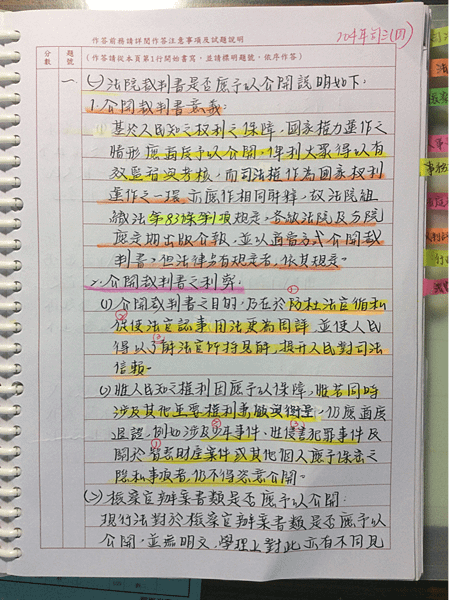 作答前務請詳閱作答注意事項及試題說明
104年司三(四)
分數
題號
(作答請從本頁第1行開始書寫,並請標明題號,依序作答)
一
(一)法院裁判書是否應予以公開說明如下:
1.公開裁判書意義:
基於人民知之權利之保障,國家權力運作之
情形應適度予以公開,俾利大眾得以有
效監督與考核,而司法權作為國家權利
運作之一環,亦應作相同解釋,故法院組
織法第83條第1項規定,各級法院及分院
應定期出版公報,並以適當方式公開裁
判書,但法律另有規定者,依其規定。
2.公開裁判書之利弊:
(1)公開裁判書之目的,乃在於防杜法官循私
促使法官認事用法更為周詳,並使人民
得以了解法官所持見解,提升人民對司法
信賴。
(2)惟人民知之權利固應予以保障,惟若同時
涉及其他重要權利事徵與衡量,仍應適度
退讓,例如涉及少年事件、性侵害犯罪事件及
關於營業財產案件或其他個人應予保密之
隱私事項者,仍不得恣意公開。
(二)檢察官辦案書類是否應予以公開:
現行法對於檢察官辦案書類是否應予以
公開,並無明文,學理上對此亦有不同見